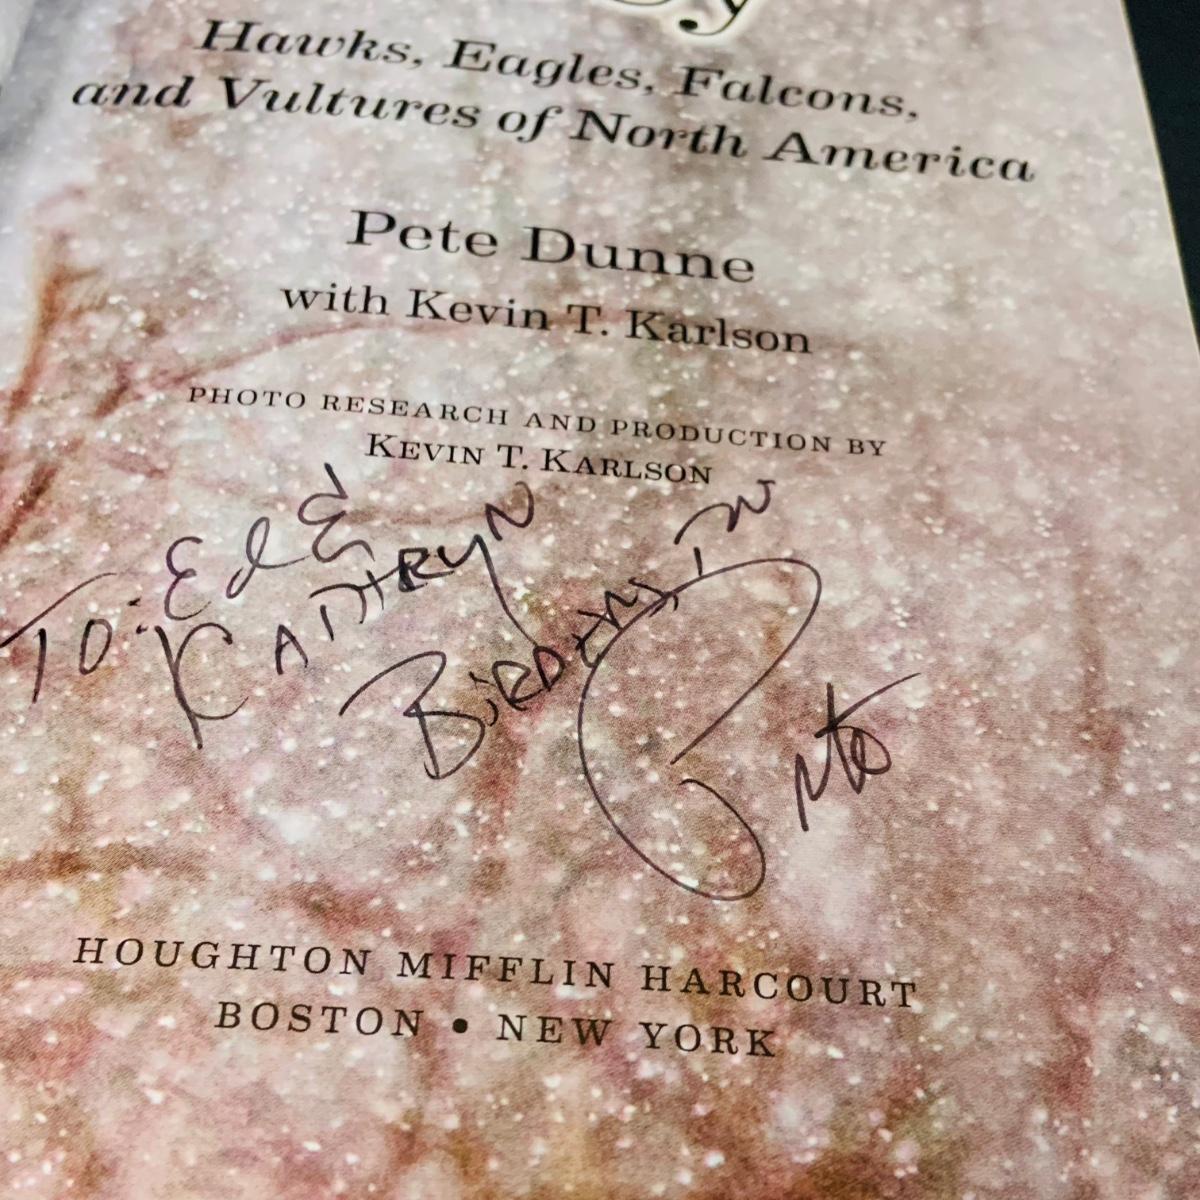 Hawks, Eagles, Falcons,
and Vultures of North America
Pete Dunne
with Kevin T. Karlson
PHOTO RESEARCH AND PRODUCTION BY
KEVIN T. KARLSON
TO: Ed &
KATHRYN
Pete
HOUGHTON MIFFLIN HARCOURT
BOSTON • NEW YORK